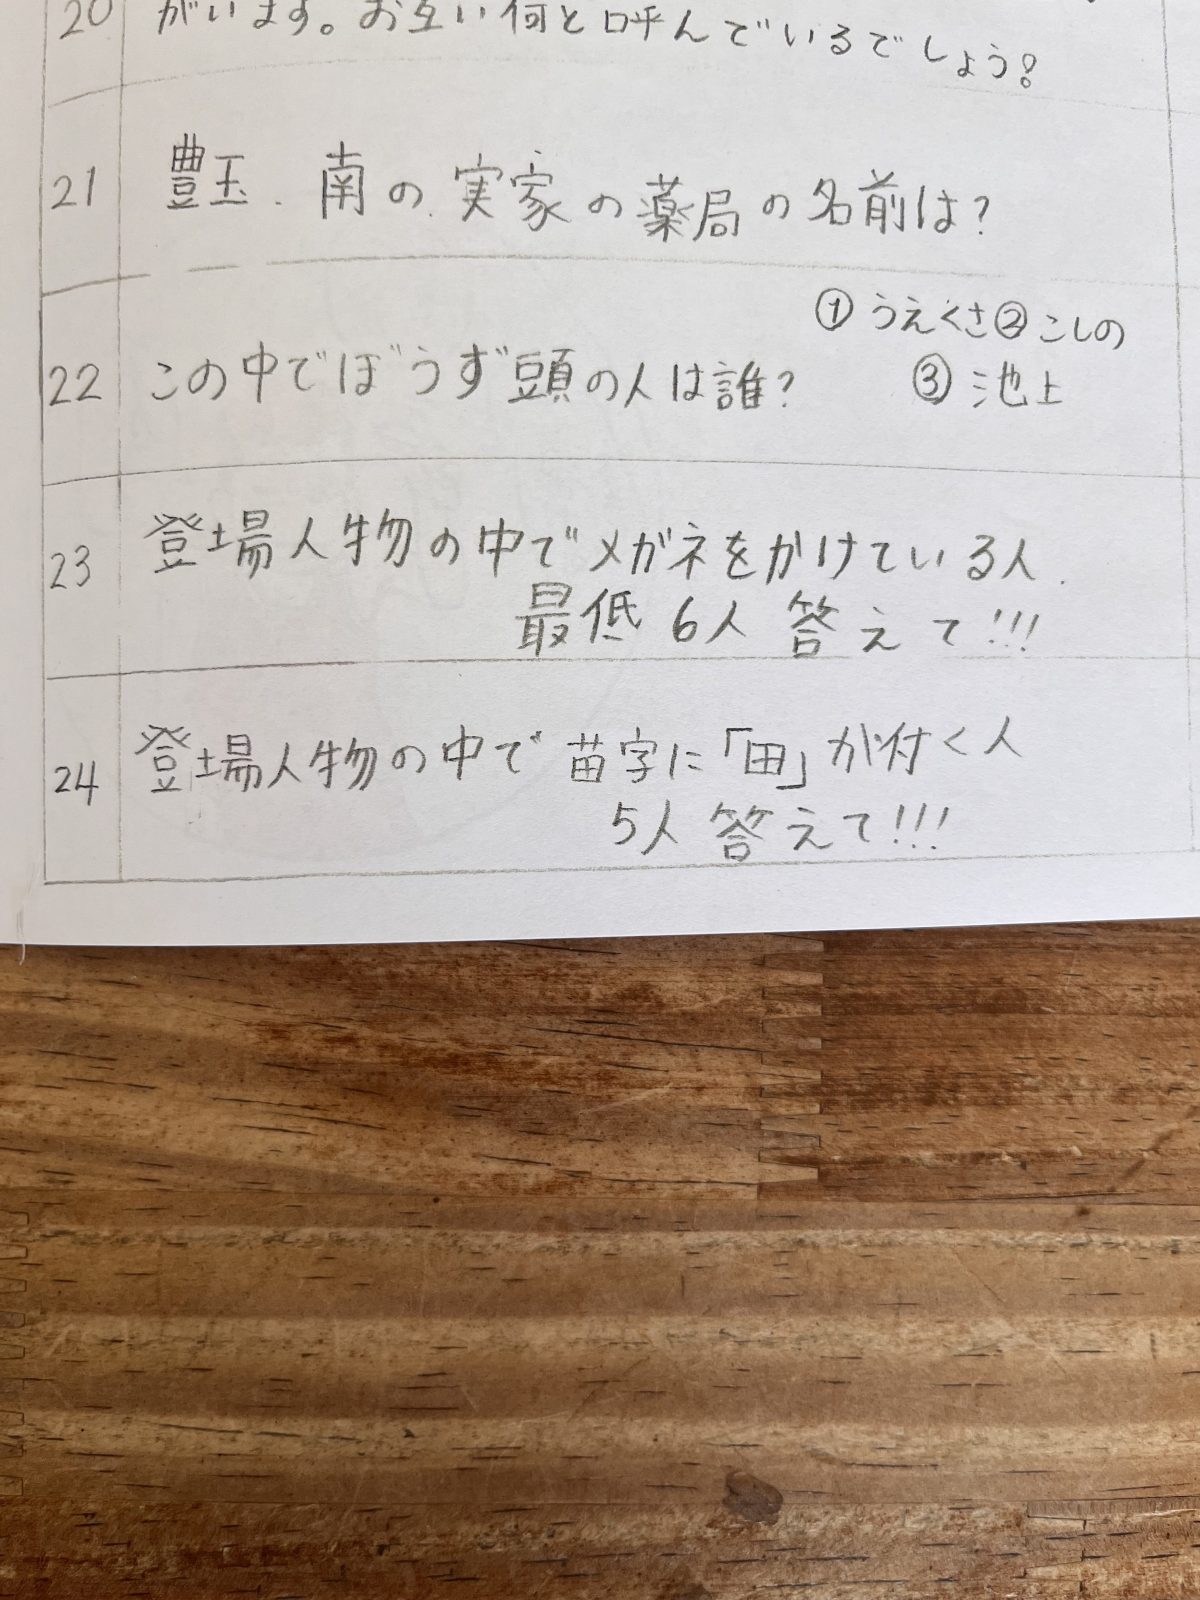 20 がいます。お互い何と呼んでいるでしょう?
21 豊玉.南の実家の薬局の名前は?
22 この中でぼうず頭の人は誰? ①うえくさ②こしの
③池上
23 登場人物の中でメガネをかけている人.
最低6人答えて!!!
24 登場人物の中で苗字に「田」が付く人
5人答えて!!!